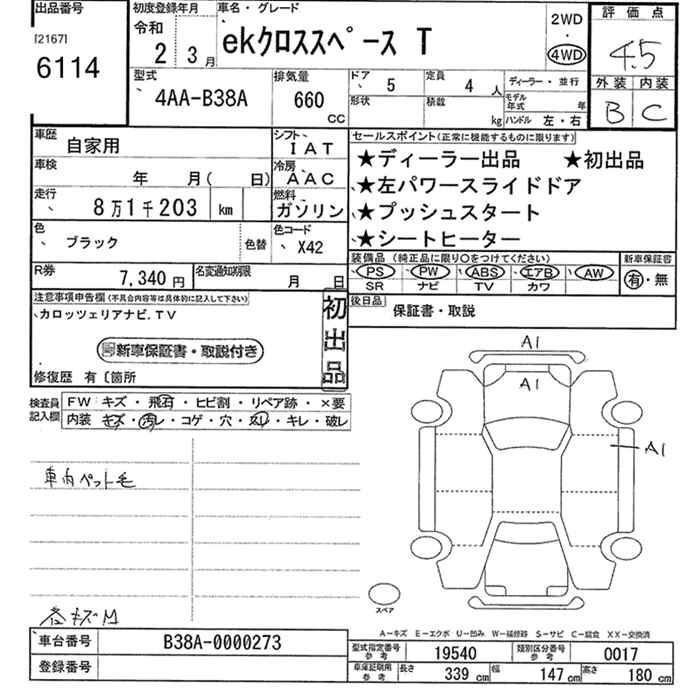 出品番号
[2167]
6114
初度登録年月
令和
2 3月
車名・グレード
ekクロススペース T
2WD
・
4WD
評価点
4.5
外装 内装
B C
型式
4AA-B38A
排気量
660 CC
ドア 5
形状
定員 4 人
積載 kg
ディーラー・並行
モデル年式 年
ハンドル 左・右
車歴 自家用
シフト IAT
車検 年 月( 日)
冷房 AAC
走行 8万1千203 km
燃料 ガソリン
色 ブラック 色替
色コード X42
R券 7,340円
名変通知期限 月 日
セールスポイント(正常に機能するものに限ります)
★ディーラー出品 ★初出品
★左パワースライドドア
★プッシュスタート
★シートヒーター
装備品(純正品に限り○をつけてください)
PS PW ABS エアB AW
SR ナビ TV カワ
新車保証書
有・無
後日品 保証書・取説
注意事項申告欄(不具合内容等は具体的に記入して下さい)
カロッツェリアナビ.TV
新車保証書・取説付き
初出品
修復歴 有〔箇所
検査員記入欄
FW キズ・飛石・ヒビ割・リペア跡・×要
内装 キズ・汚レ・コゲ・穴・ヌレ・キレ・破レ
車内ペット毛
A1
A1
A1
スペア
A-キズ E-エクボ U-凹み W-補修跡 S-サビ C-腐食 XX-交換済
車台番号 B38A-0000273
登録番号
型式指定番号参考 19540
類別区分番号参考 0017
車庫証明用参考 長さ 339 cm 幅 147 cm 高さ 180 cm